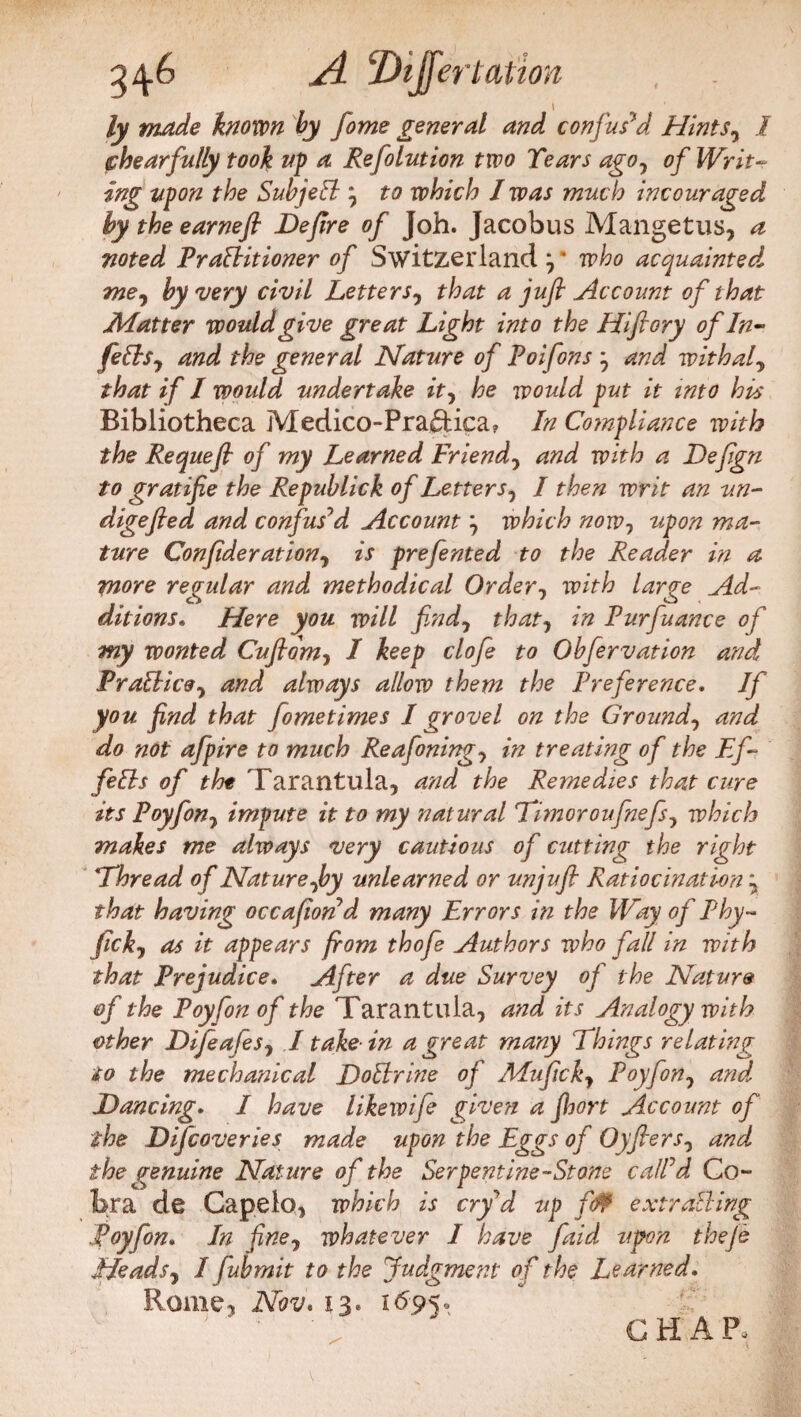 346 A Dissertation
ly made known by ſome general and confus'd Hints, I
chearfully took up a Reſolution two Years ago, of Writ-
ing upon the Subject; to which I was much incouraged
by the earneſt Deſire of Joh. Jacobus Mangetus, a
noted Practitioner of Switzerland; who acquainted
me, by very civil Letters, that a juſt Account of that
Matter would give great Light into the Hiſtory of In-
ſects, and the general Nature of Poiſons; and withal,
that if I would undertake it, he would put it into his
Bibliotheca Medico-Practica. In Compliance with
the Requeſt of my Learned Friend, and with a Deſign
to gratifie the Republick of Letters, I then writ an un-
digeſted and confus'd Account; which now, upon ma-
ture Conſideration, is preſented to the Reader in a
more regular and methodical Order, with large Ad-
ditions. Here you will find, that, in Purſuance of
my wonted Cuſtom, I keep cloſe to Obſervation and
Practice, and always allow them the Preference. If
you find that ſometimes I grovel on the Ground, and
do not aſpire to much Reaſoning, in treating of the Ef-
fects of the Tarantula, and the Remedies that cure
its Poyſon, impute it to my natural Timorouſneſs, which
makes me always very cautious of cutting the right
Thread of Nature, by unlearned or unjuſt Ratiocination;
that having occaſion'd many Errors in the Way of Phy-
ſick, as it appears from thoſe Authors who fall in with
that Prejudice. After a due Survey of the Nature
of the Poyſon of the Tarantula, and its Analogy with
other Diſeaſes, I take in a great many Things relating
to the mechanical Doctrine of Muſick, Poyſon, and
Dancing. I have likewiſe given a ſhort Account of
the Diſcoveries made upon the Eggs of Oyſters, and
the genuine Nature of the Serpentine-Stone call'd Co-
bra de Capelo, which is cry'd up for extracting
Poyſon. In fine, whatever I have ſaid upon theſe
Heads, I ſubmit to the Judgment of the Learned.
Rome, Nov. 13. 1695.
CHAP.